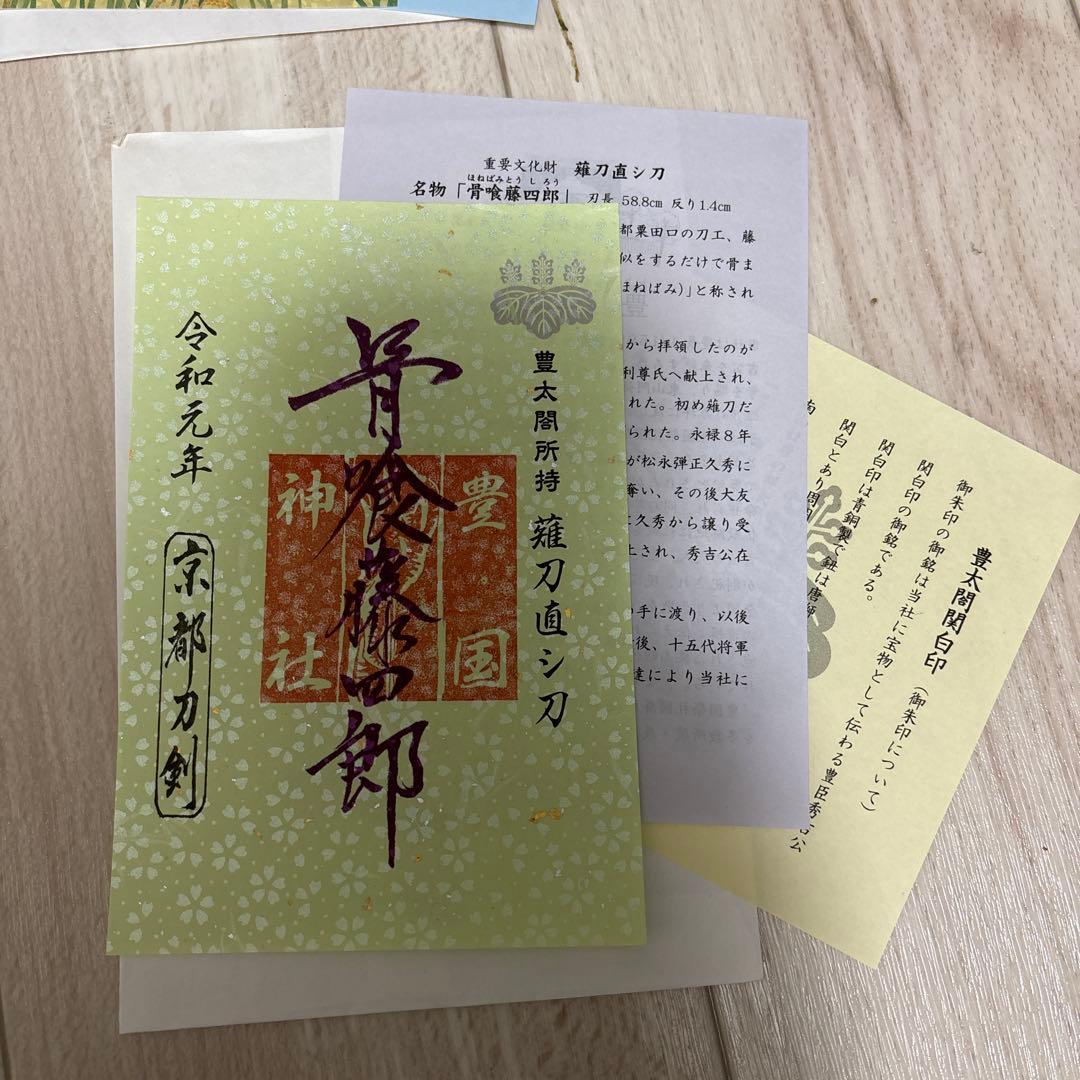 豊太閤所持 薙刀直シ刀
骨喰藤四郎
豊国
神社
令和元年
京都刀剣
重要文化財 薙刀直シ刀
ほねばみとうしろう
名物「骨喰藤四郎」 刃長 58.8㎝ 反り1.4㎝
都粟田口の刀工、藤
似をするだけで骨ま
ほねばみ)」と称され
から拝領したのが
利尊氏へ献上され、
れた。初め薙刀だ
られた。永禄8年
が松永弾正久秀に
奪い、その後大友
久秀から譲り受
上され、秀吉公在
の手に渡り、以後
後、十五代将軍
達により当社に
豊太閤関白印(御朱印について)
御朱印の御銘は当社に宝物として伝わる豊臣秀吉公
関白印の御銘である。
関白印は青銅製で鈕は唐獅
関白とあり